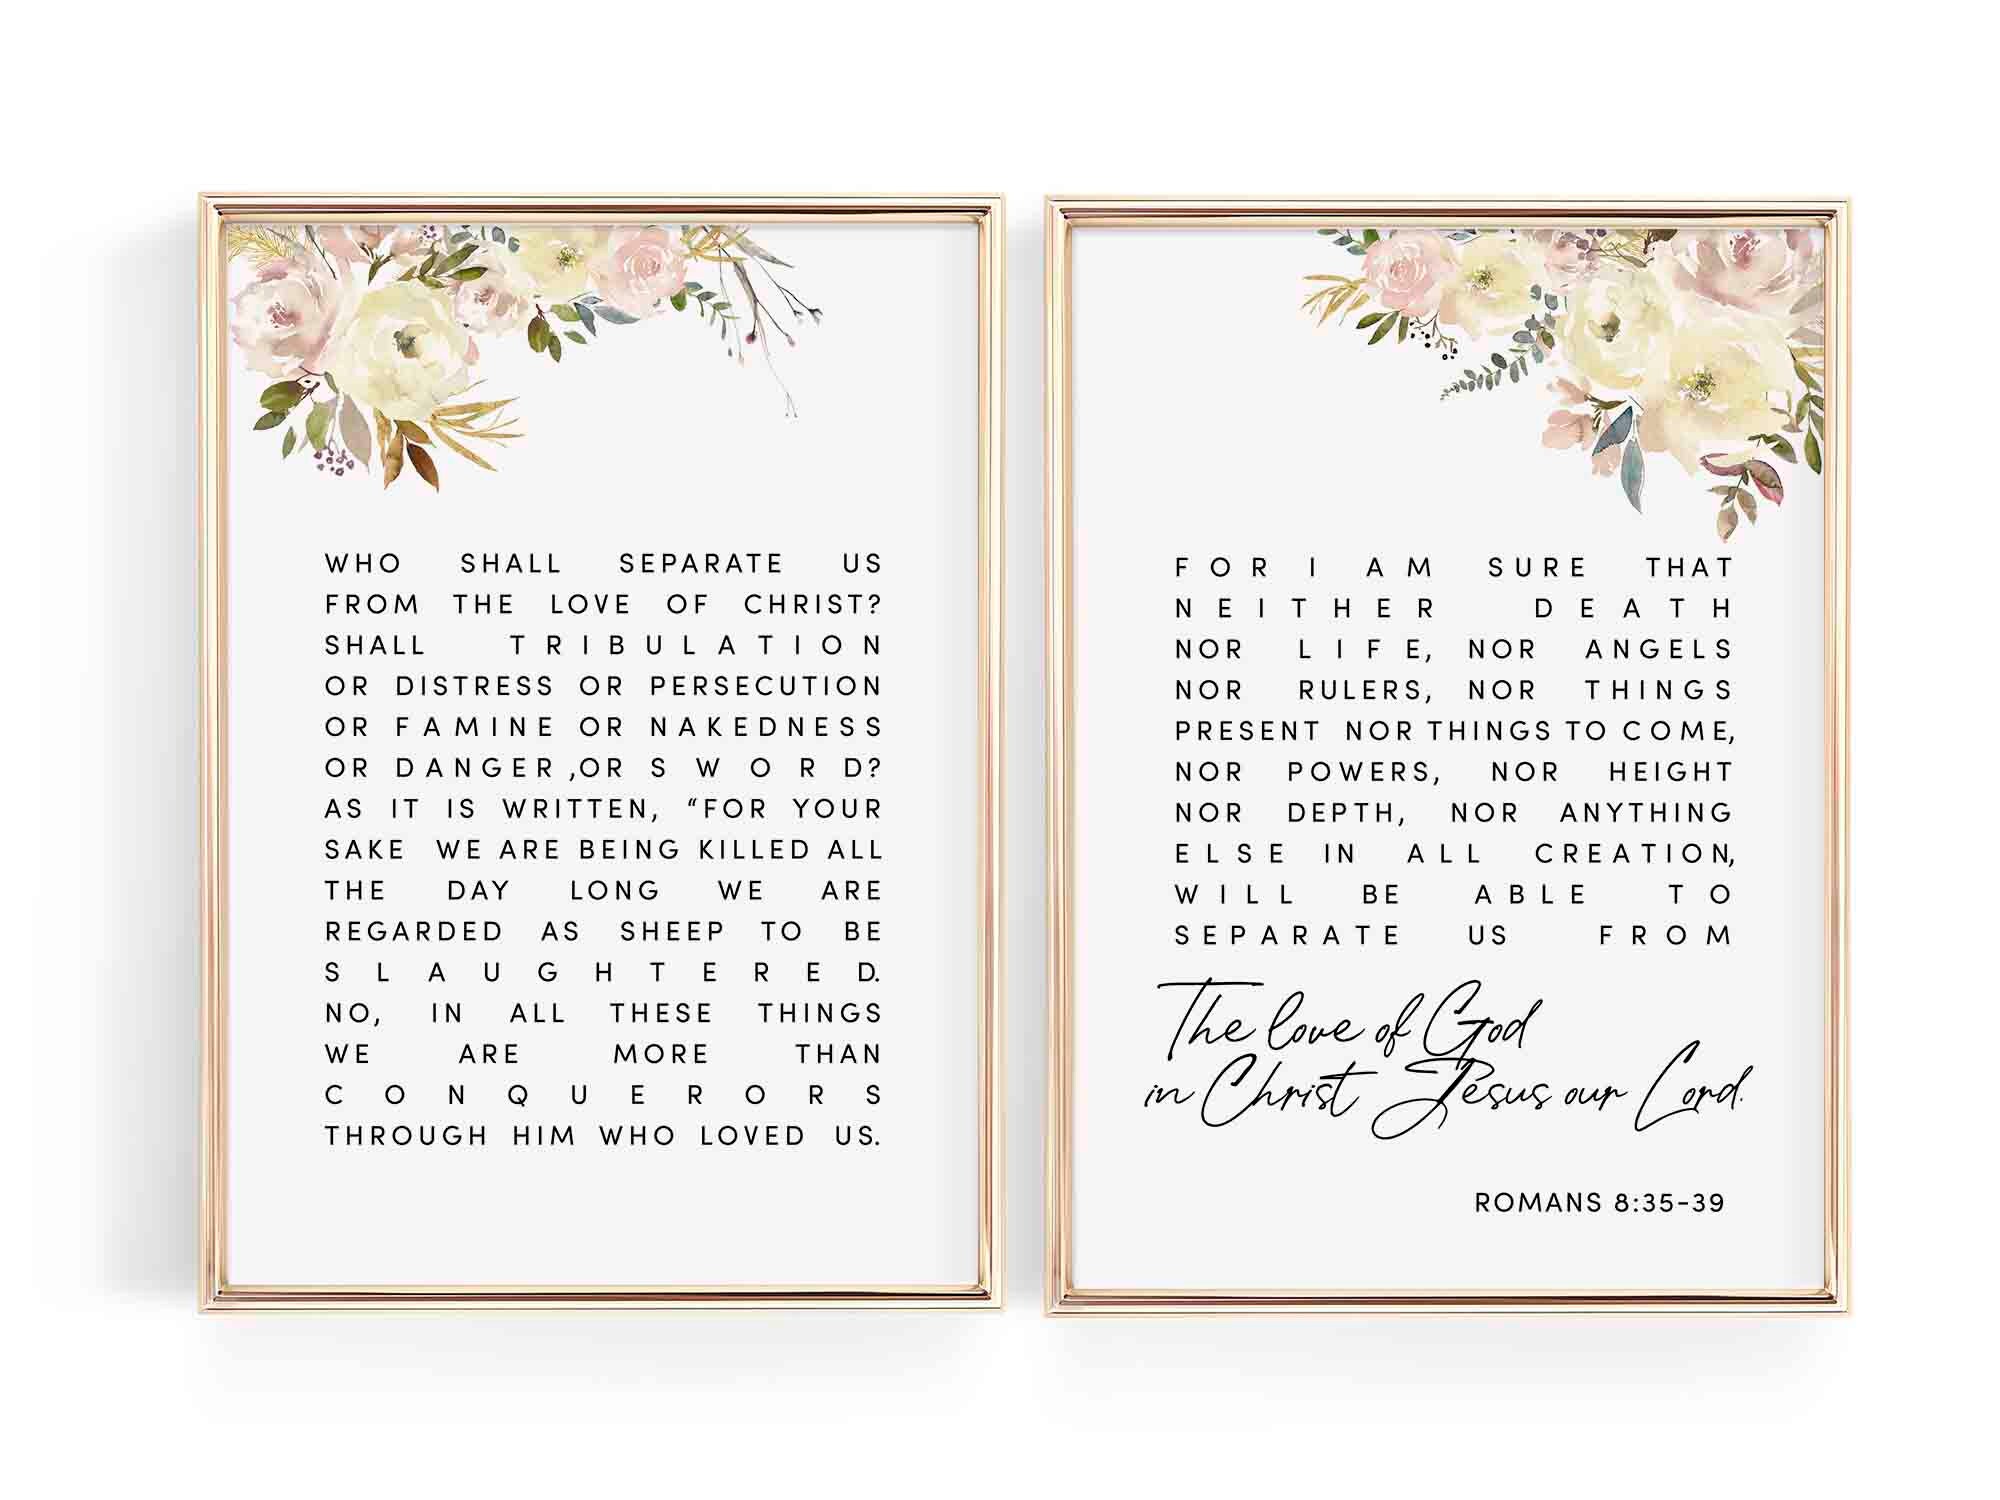 WHO SHALL SEPARATE US
FROM THE LOVE OF CHRIST?
SHALL TRIBULATION
OR DISTRESS OR PERSECUTION
OR FAMINE OR NAKEDNESS
OR DANGER ,OR SWORD?
AS IT IS WRITTEN, “FOR YOUR
SAKE WE ARE BEING KILLED ALL
THE DAY LONG WE ARE
REGARDED AS SHEEP TO BE
SLAUGHTERED.
NO, IN ALL THESE THINGS
WE ARE MORE THAN
CONQUERORS
THROUGH HIM WHO LOVED US.
FOR I AM SURE THAT
NEITHER DEATH
NOR LIFE, NOR ANGELS
NOR RULERS, NOR THINGS
PRESENT NOR THINGS TO COME,
NOR POWERS, NOR HEIGHT
NOR DEPTH, NOR ANYTHING
ELSE IN ALL CREATION,
WILL BE ABLE TO
SEPARATE US FROM
The love of God
in Christ Jesus our Lord.
ROMANS 8:35-39